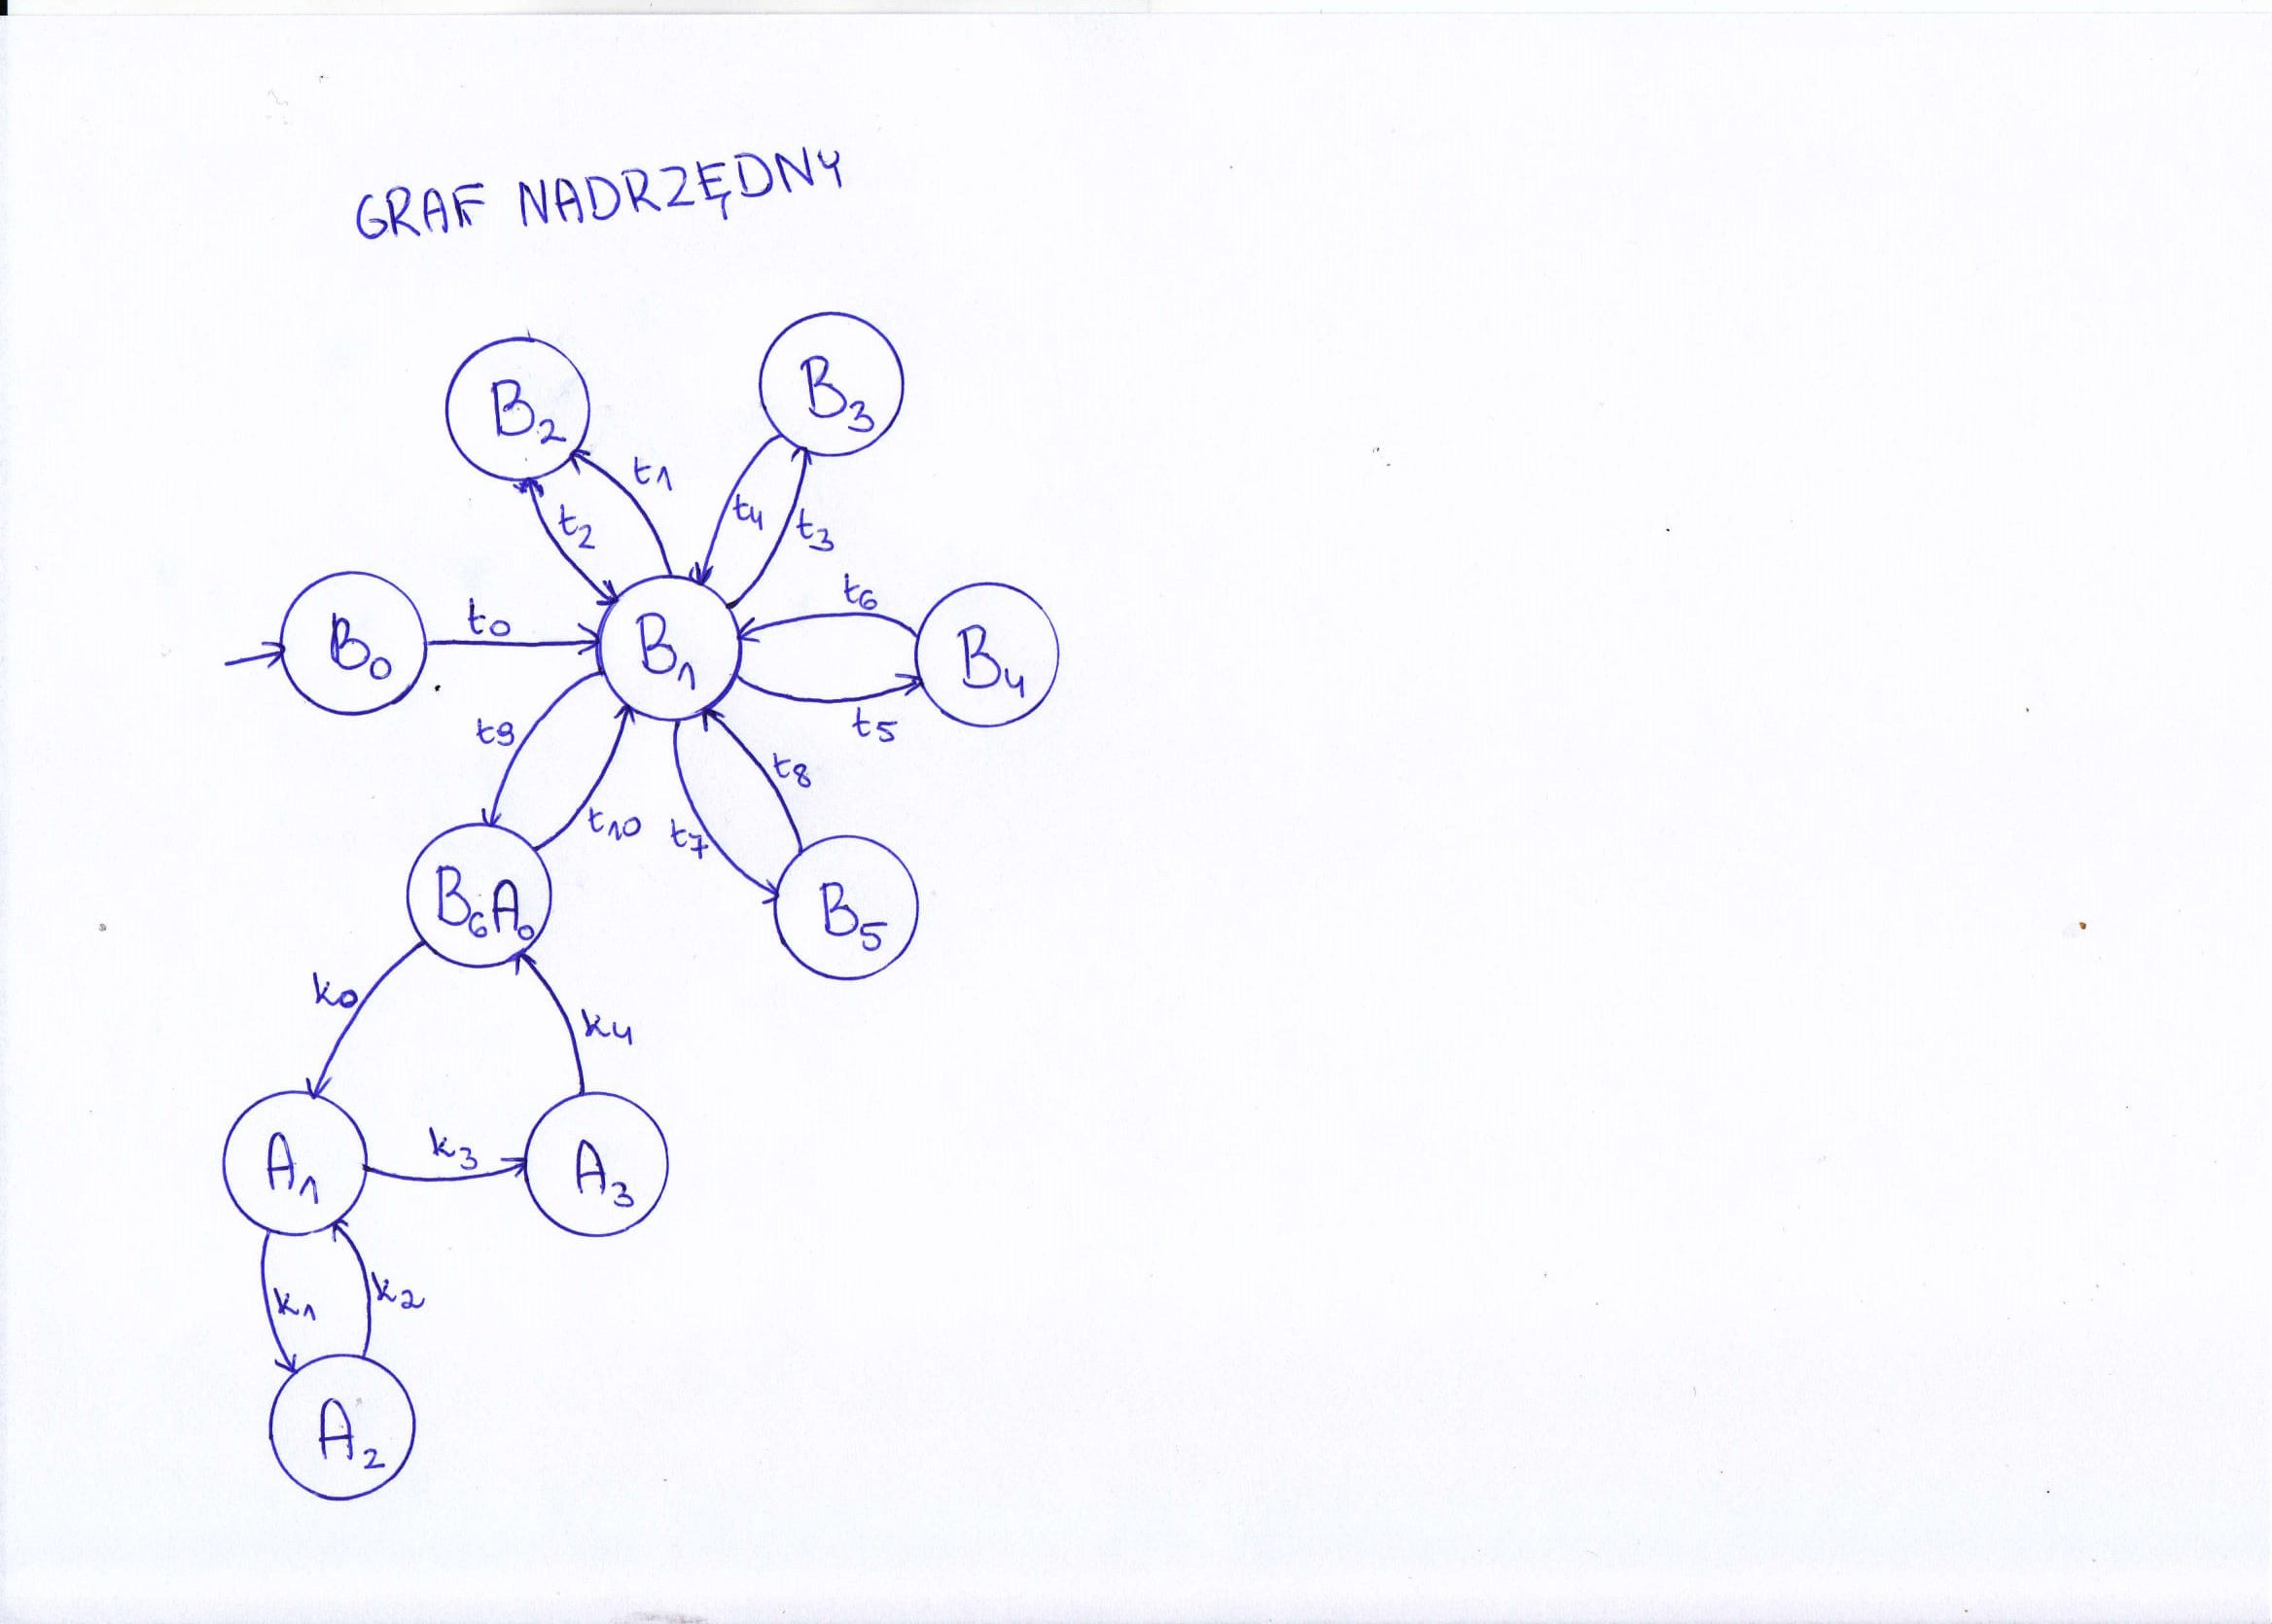 GRAF NADRZĘDNY
B2
B3
t1
t2
t4
t3
t6
B0
t0
B1
B4
t5
t9
t8
t10
t7
B6A0
B5
k0
k4
A1
k3
A3
k1
k2
A2